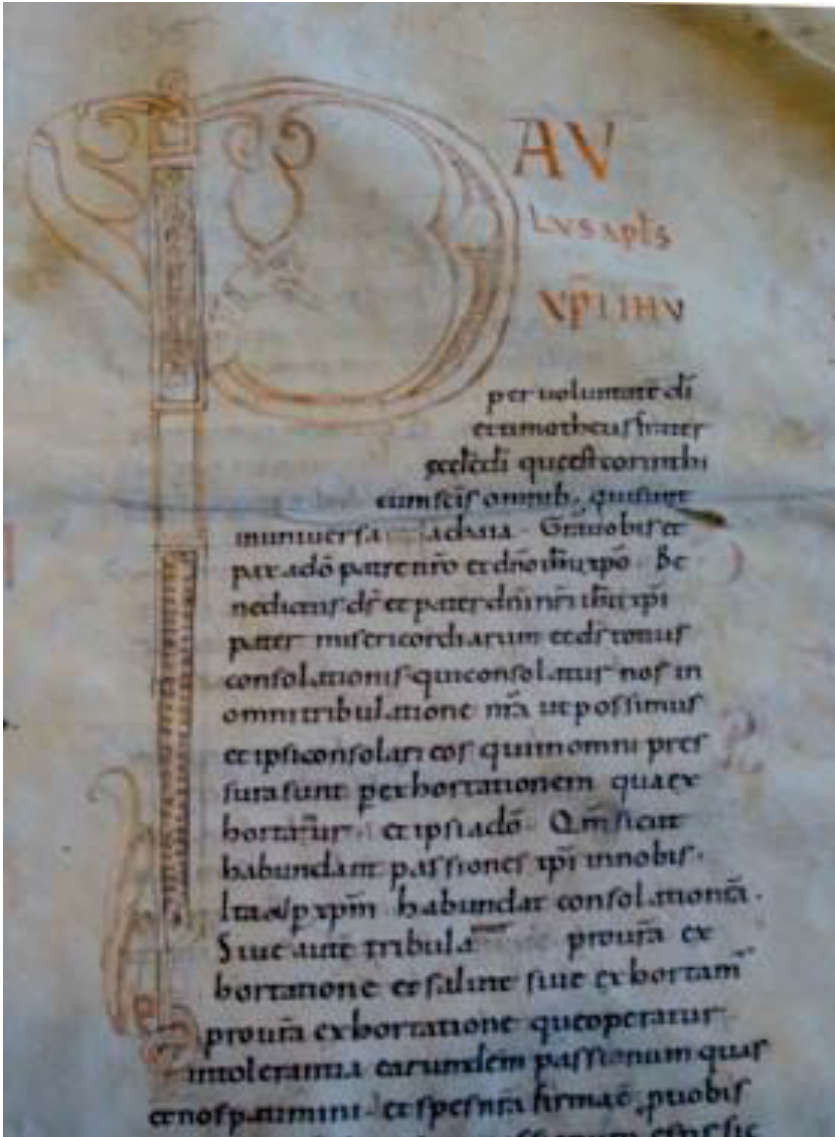 PAV
LVS apl̄s
XP̄I IHV
per uoluntatē dī
et timotheus frater
ecclē dī que est corinthi
cum scīs omnib; qui sunt
in uniuersa achaia. Grā uobis et
pax a dō patre nr̄o et dn̄o ih̄u xpō. Be
nedictus ds̄ et pater dn̄i nr̄i ih̄u xpī
pater misericordiarum et ds̄ totius
consolationis qui consolatur nos in
omni tribulatione nr̄a ut possimus
et ipsi consolari eos qui in omni pres
sura sunt per hortationem qua ex
hortamur et ipsi a dō. Qm̄ sicut
habundant passiones xpī in nobis.
Ita & p xpm̄ habundat consolatio nr̄a.
Siue autē tribula pro ur̄a ex
hortatione et salute siue exhortam̄
pro ur̄a exhortatione que operatur
in tolerantia earundem passionum quas
et nos patimini et spes nr̄a firma ē p uobis